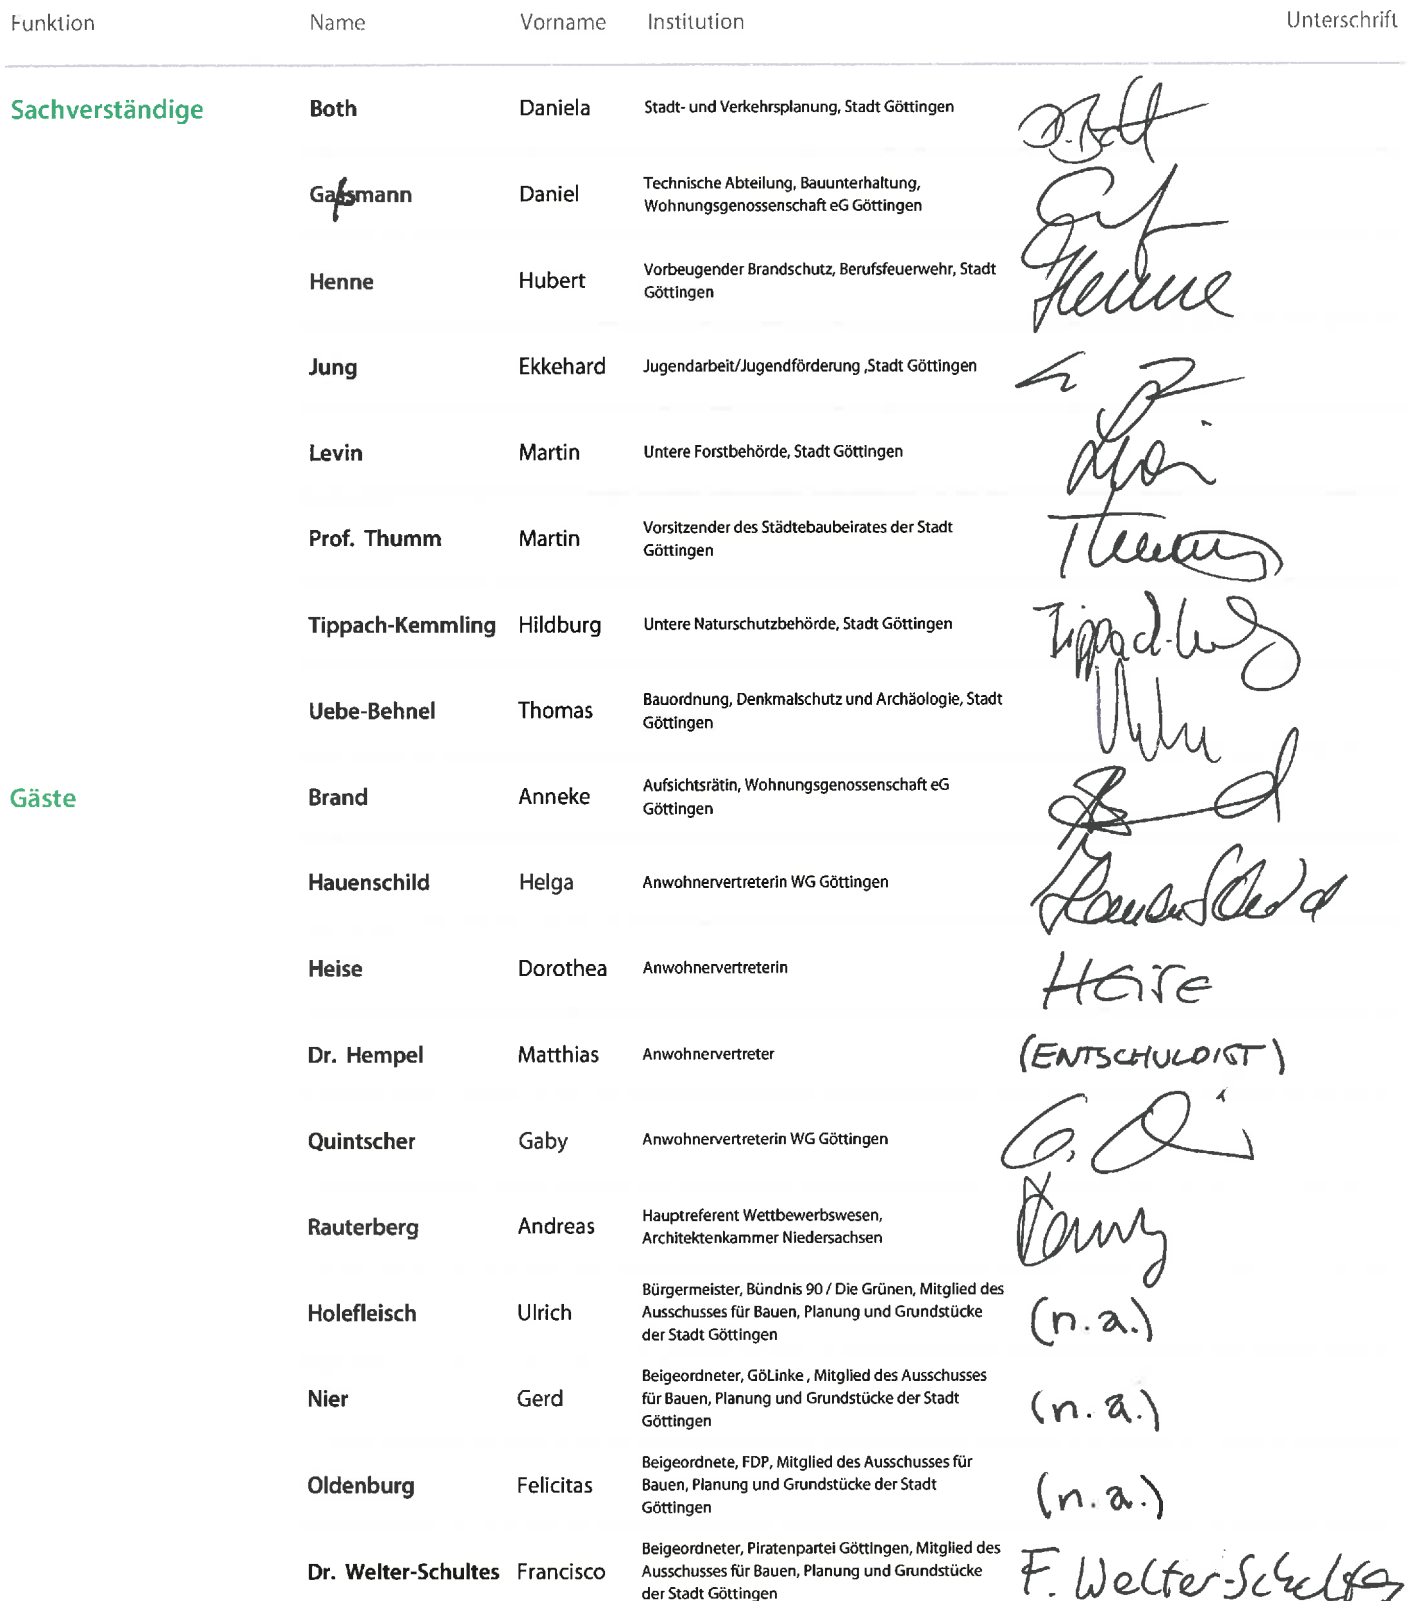 Funktion Name Vorname Institution Unterschrift
Sachverständige Both Daniela Stadt- und Verkehrsplanung, Stadt Göttingen D. Both
Gaßmann Daniel Technische Abteilung, Bauunterhaltung,
Wohnungsgenossenschaft eG Göttingen
Henne Hubert Vorbeugender Brandschutz, Berufsfeuerwehr, Stadt Henne
Göttingen
Jung Ekkehard Jugendarbeit/Jugendförderung ,Stadt Göttingen
Levin Martin Untere Forstbehörde, Stadt Göttingen
Prof. Thumm Martin Vorsitzender des Städtebaubeirates der Stadt Thumm
Göttingen
Tippach-Kemmling Hildburg Untere Naturschutzbehörde, Stadt Göttingen
Uebe-Behnel Thomas Bauordnung, Denkmalschutz und Archäologie, Stadt
Göttingen
Gäste Brand Anneke Aufsichtsrätin, Wohnungsgenossenschaft eG
Göttingen
Hauenschild Helga Anwohnervertreterin WG Göttingen Hauenschild
Heise Dorothea Anwohnervertreterin Heise
Dr. Hempel Matthias Anwohnervertreter (ENTSCHULDIGT)
Quintscher Gaby Anwohnervertreterin WG Göttingen
Rauterberg Andreas Hauptreferent Wettbewerbswesen,
Architektenkammer Niedersachsen
Holefleisch Ulrich Bürgermeister, Bündnis 90 / Die Grünen, Mitglied des
Ausschusses für Bauen, Planung und Grundstücke (n.a.)
der Stadt Göttingen
Nier Gerd Beigeordneter, GöLinke , Mitglied des Ausschusses
für Bauen, Planung und Grundstücke der Stadt (n.a.)
Göttingen
Oldenburg Felicitas Beigeordnete, FDP, Mitglied des Ausschusses für
Bauen, Planung und Grundstücke der Stadt (n.a.)
Göttingen
Dr. Welter-Schultes Francisco Beigeordneter, Piratenpartei Göttingen, Mitglied des
Ausschusses für Bauen, Planung und Grundstücke F. Welter-Schultes
der Stadt Göttingen